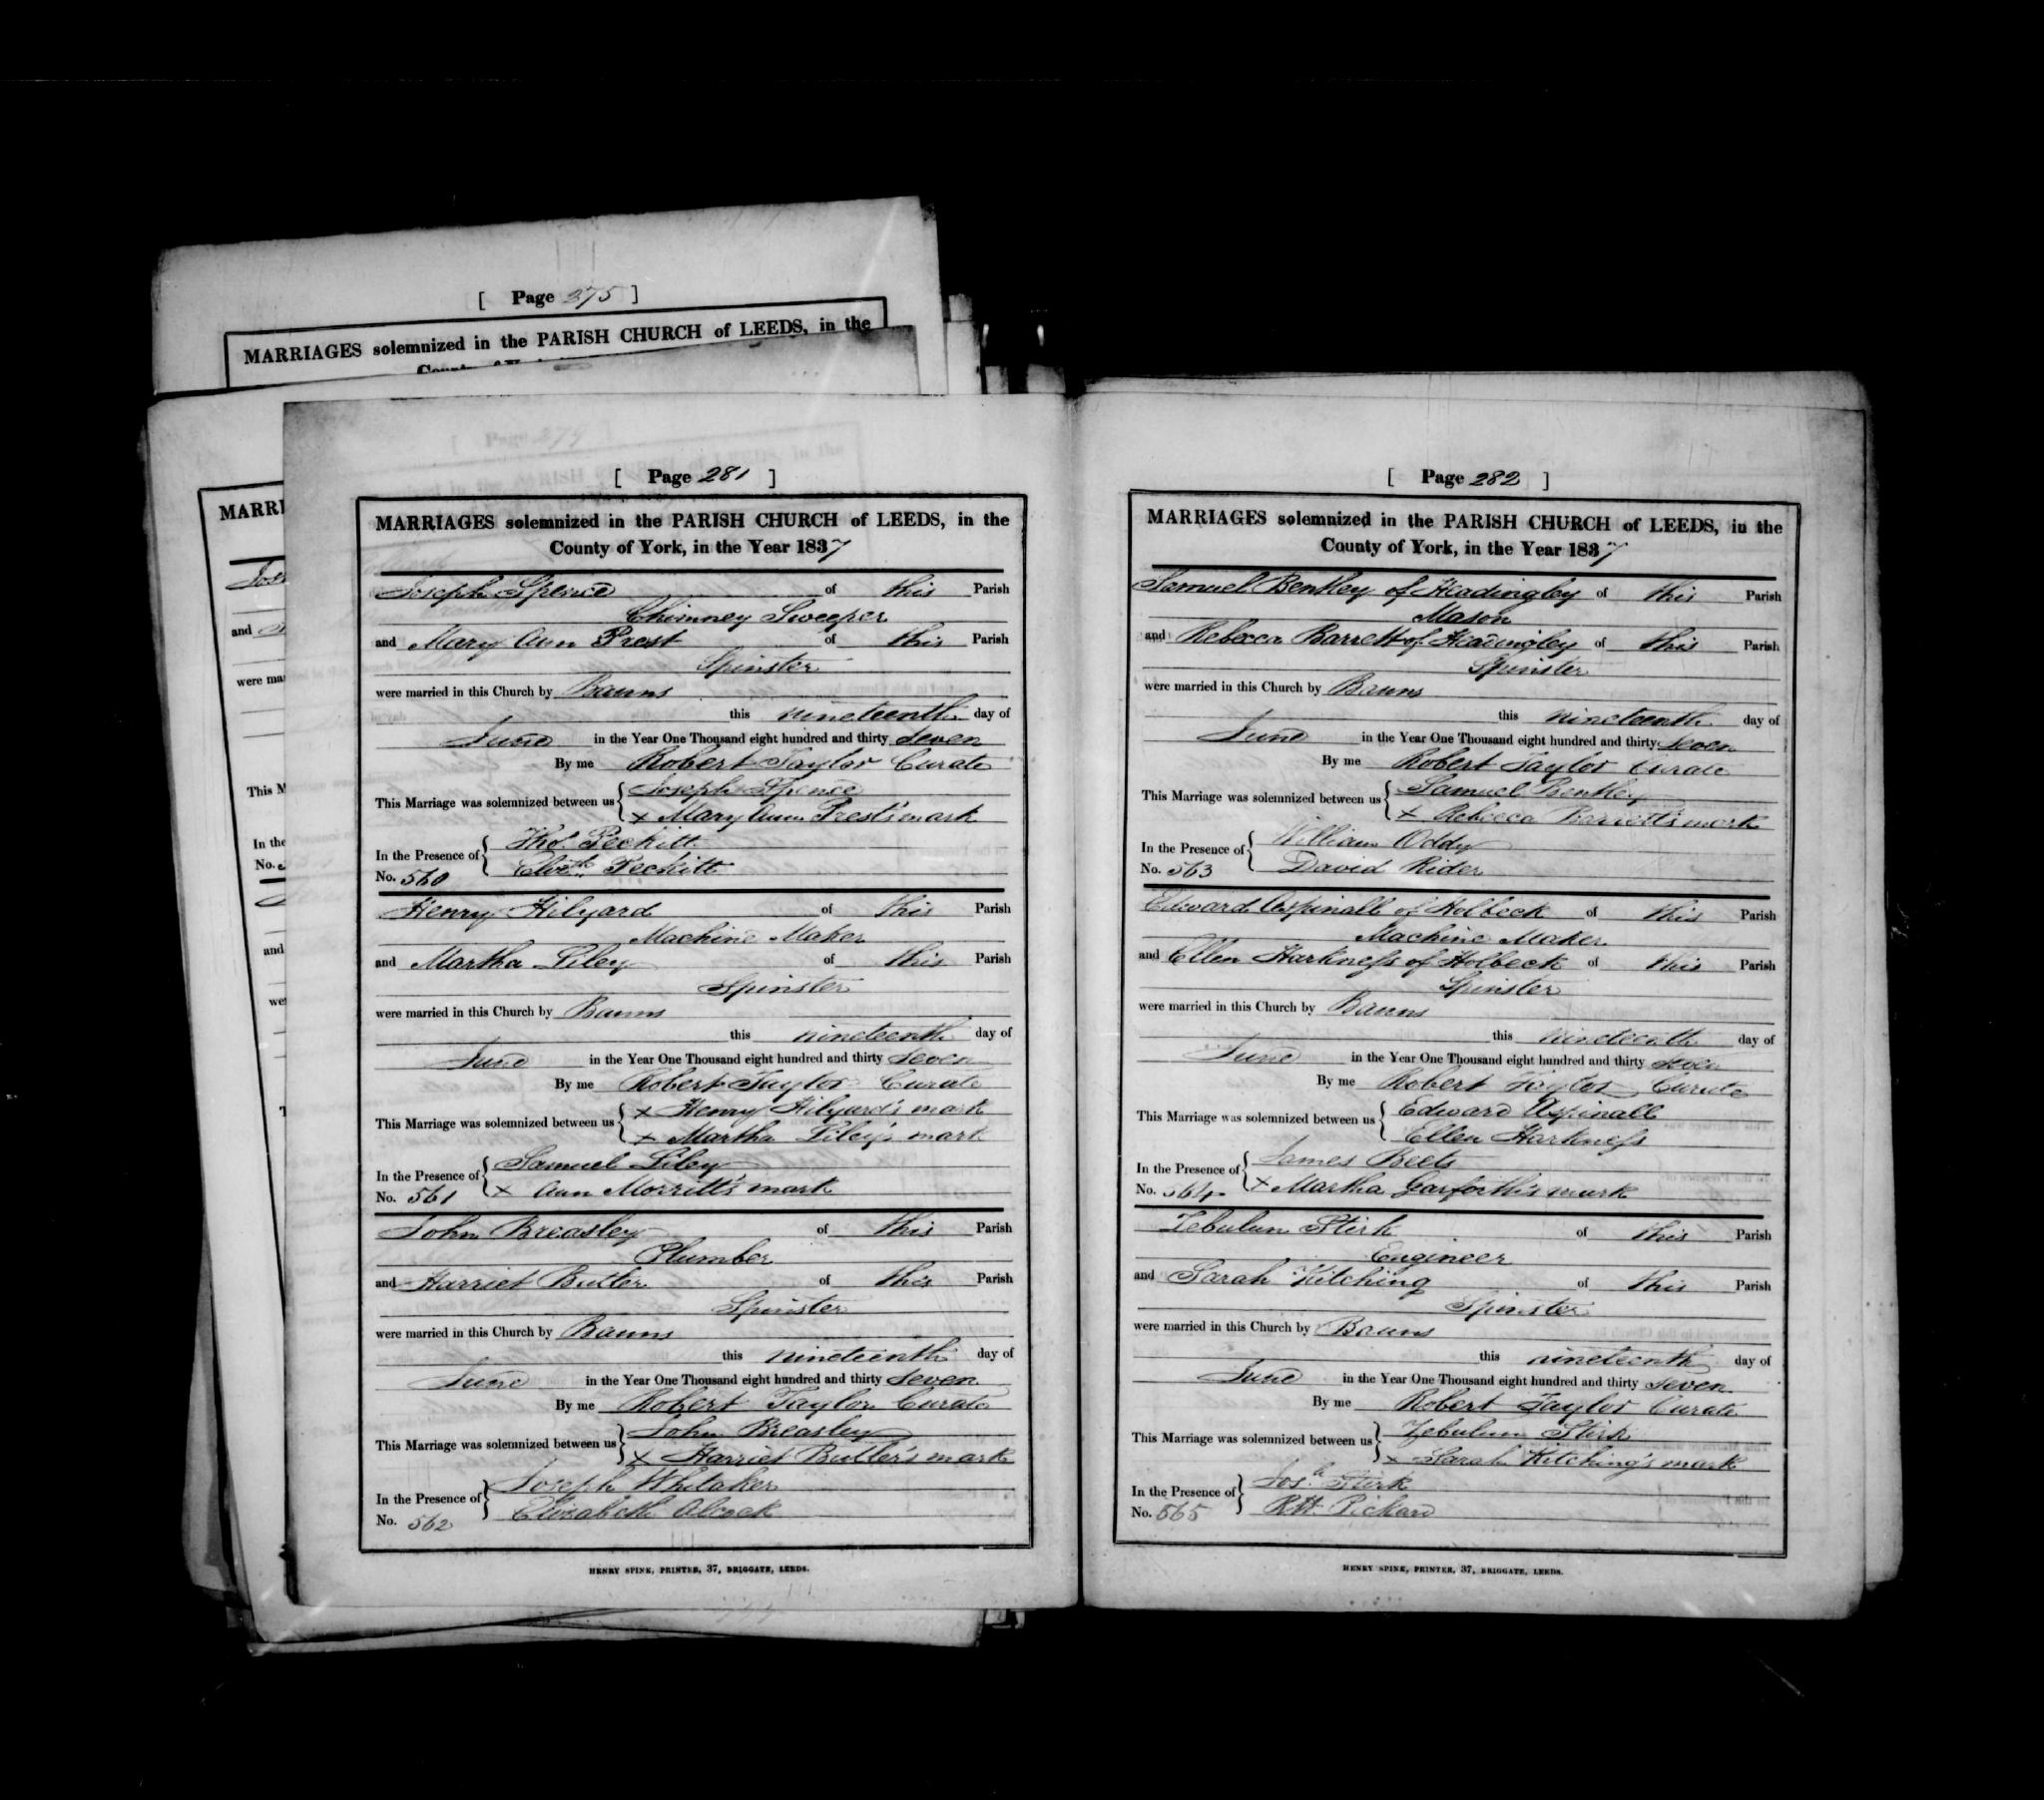 [ Page 275 ]
MARRIAGES solemnized in the PARISH CHURCH of LEEDS, in the
MARRI
and
were mar
This M
In the
No.
and
we
[ Page 281 ]
MARRIAGES solemnized in the PARISH CHURCH of LEEDS, in the
County of York, in the Year 1837
Joseph Spence of this Parish
Chimney Sweeper
and Mary Ann Prest of this Parish
Spinster
were married in this Church by Banns
this nineteenth day of
June in the Year One Thousand eight hundred and thirty seven
By me Robert Taylor Curate
This Marriage was solemnized between us { Joseph Spence
x Mary Ann Prest's mark
In the Presence of { Thos. Peckitt
No. 560 Elizth Peckitt
Henry Hilyard of this Parish
Machine Maker
and Martha Liley of this Parish
Spinster
were married in this Church by Banns
this nineteenth day of
June in the Year One Thousand eight hundred and thirty seven
By me Robert Taylor Curate
This Marriage was solemnized between us { x Henry Hilyard's mark
x Martha Liley's mark
In the Presence of { Samuel Liley
No. 561 x Ann Morritt's mark
John Breasley of this Parish
Plumber
and Harriet Butler of this Parish
Spinster
were married in this Church by Banns
this nineteenth day of
June in the Year One Thousand eight hundred and thirty seven
By me Robert Taylor Curate
This Marriage was solemnized between us } John Breasley
x Harriet Butler's mark
In the Presence of } Joseph Whitaker
No. 562 Elizabeth Alcock
HENRY SPINK, PRINTER, 37, BRIGGATE, LEEDS.
[ Page 282 ]
MARRIAGES solemnized in the PARISH CHURCH of LEEDS, in the
County of York, in the Year 1837
Samuel Bentley of Headingley of this Parish
Mason
and Rebecca Barrett of Headingley of this Parish
Spinster
were married in this Church by Banns
this nineteenth day of
June in the Year One Thousand eight hundred and thirty seven
By me Robert Taylor Curate
This Marriage was solemnized between us { Samuel Bentley
x Rebecca Barrett's mark
In the Presence of { William Oddy
No. 563 David Rider
Edward Aspinall of Holbeck of this Parish
Machine Maker
and Ellen Harkness of Holbeck of this Parish
Spinster
were married in this Church by Banns
this nineteenth day of
June in the Year One Thousand eight hundred and thirty seven
By me Robert Taylor Curate
This Marriage was solemnized between us { Edward Aspinall
Ellen Harkness
In the Presence of { James Beets
No. 564 x Martha Garforth's mark
Zebulun Stirk of this Parish
Engineer
and Sarah Kitching of this Parish
Spinster
were married in this Church by Banns
this nineteenth day of
June in the Year One Thousand eight hundred and thirty seven
By me Robert Taylor Curate
This Marriage was solemnized between us } Zebulun Stirk
x Sarah Kitching's mark
In the Presence of } Josh. Stirk
No. 565 Pickard
HENRY SPINK, PRINTER, 37, BRIGGATE, LEEDS.